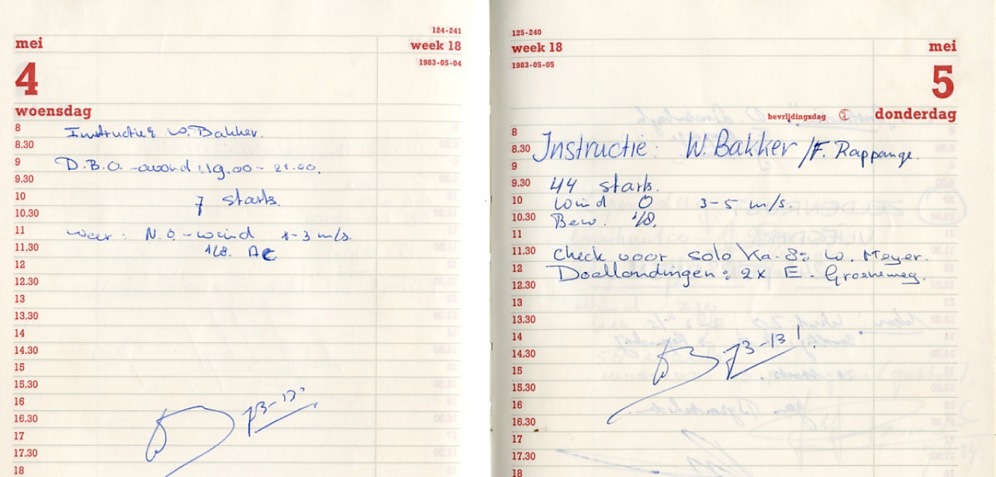 124-241
mei
week 18
1983-05-04
4
woensdag
8 Instructie: W. Bakker.
8.30
9 D.B.O. -avond: 19.00 - 21.00.
9.30
10 7 starts.
10.30
11 weer: N.O. - wind 1-3 m/s.
11.30 1/8. AC
12
12.30
13
13.30
14
14.30
15
15.30
16
16.30
17
17.30
18
125-240
week 18
mei
1983-05-05
5
bevrijdingsdag donderdag
8
8.30 Instructie: W. Bakker / F. Rappange.
9
9.30 44 starts.
10 Wind O 3-5 m/s.
10.30 Bew. 1/8.
11
11.30 Check voor solo Ka-8: W. Meyer.
12 Doellandingen: 2x E. Groeneweg.
12.30
13
13.30
14
14.30
15
15.30
16
16.30
17
17.30
18